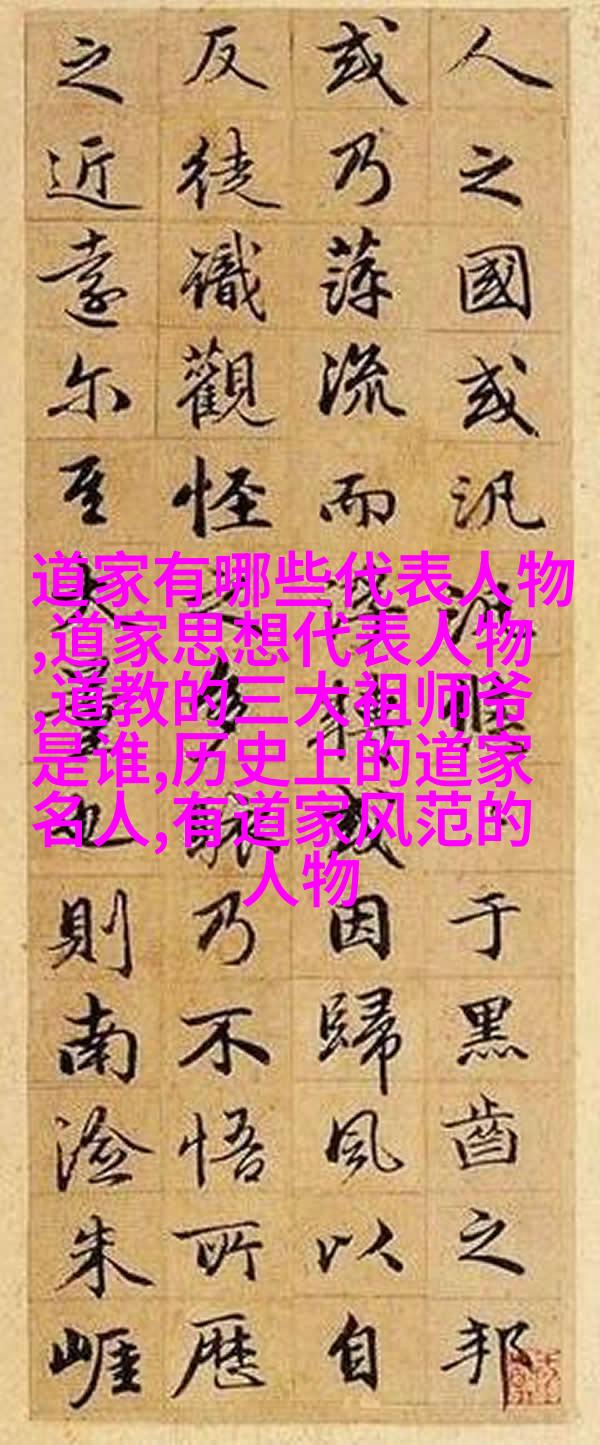 人之國或汎悠于黑齒之邦
或乃萍流而浮轉或因歸風以自
反徒識觀怪之多駭乃不悟所歷
之近遠尔至大量也則南澰朱崕
道家有哪些代表人物
,道家思想代表人物
,道教的三大祖师爷
是谁,历史上的道家
名人,有道家风范的
人物